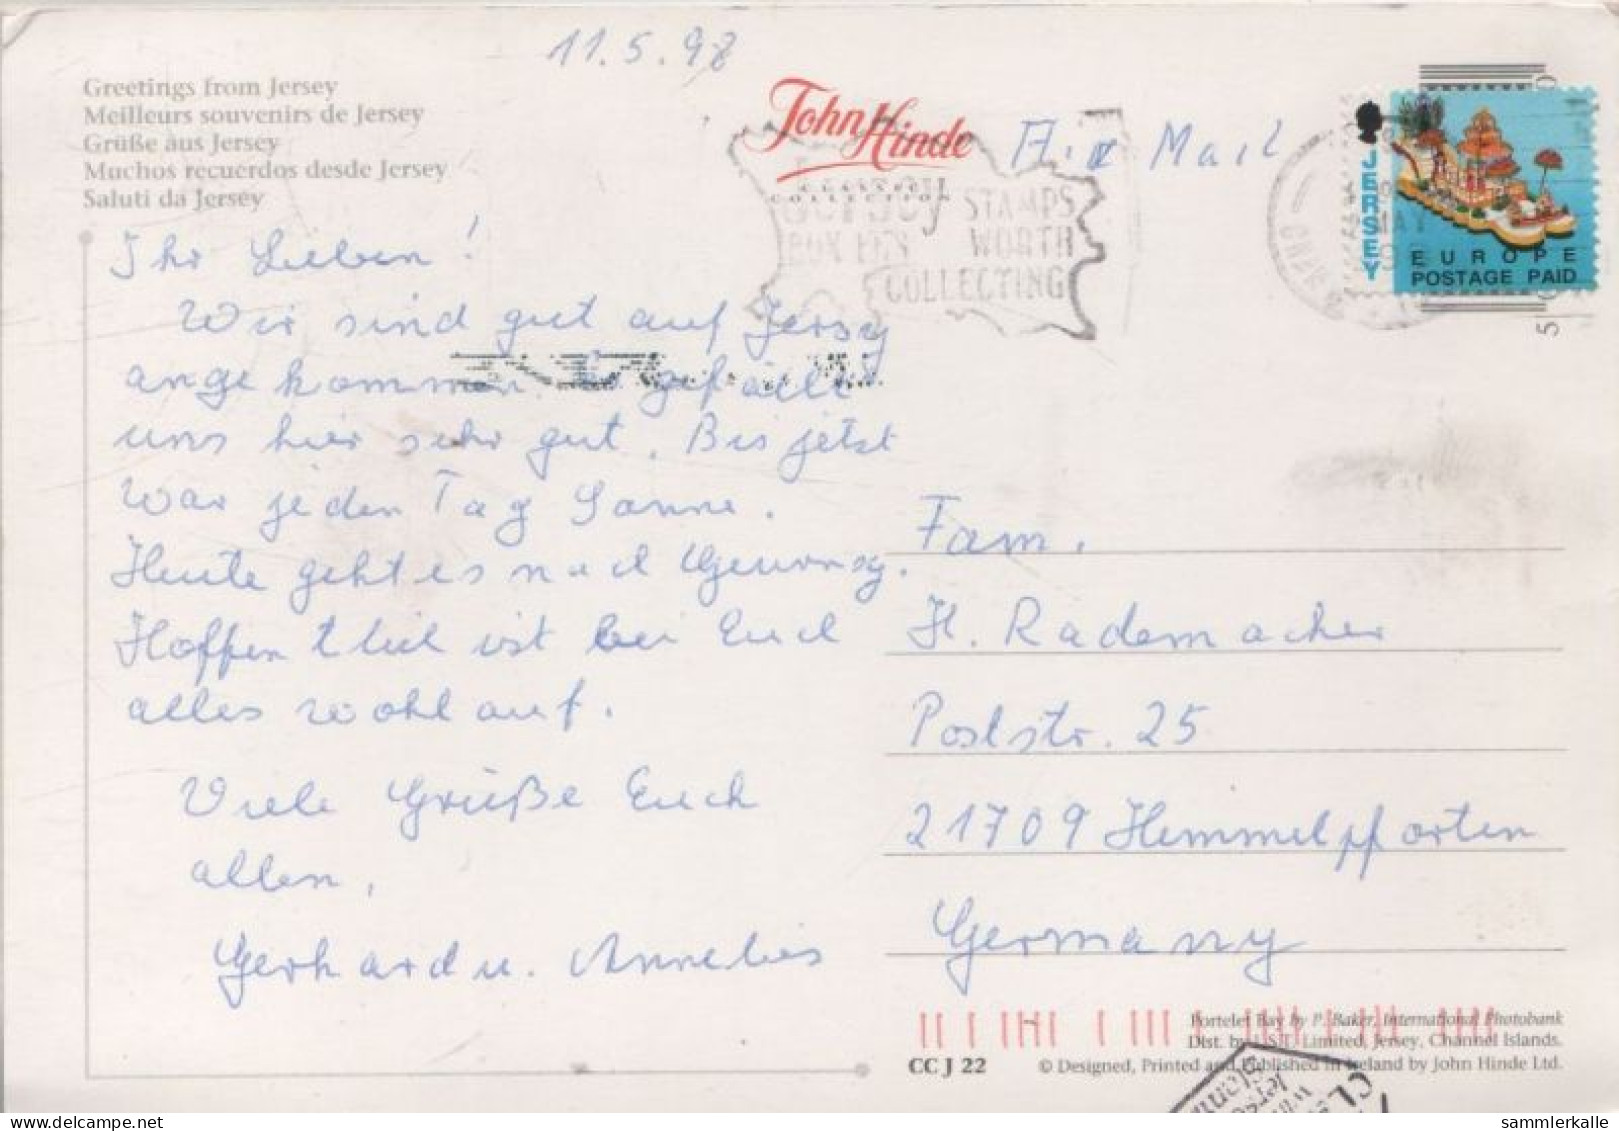 11.5.98
Greetings from Jersey
Meilleurs souvenirs de Jersey
Grüße aus Jersey
Muchos recuerdos desde Jersey
Saluti da Jersey
John Hinde
COLLECTION
Air Mail
STAMPS
WORTH
COLLECTING
JERSEY
EUROPE
POSTAGE PAID
Ihr Lieben!
Wir sind gut auf Jersey
angekommen. gefällt
uns hier sehr gut. Bis jetzt
war jeden Tag Sonne.
Heute geht es nach Guernsey.
Hoffentlich ist bei Euch
alles wohlauf.
Viele Grüße Euch
allen,
Gerhard u. Annelies
Fam.
H. Rademacher
Poststr. 25
21709 Himmelpforten
Germany
Portelet Bay by P. Baker, International Photobank
Dist. by L.S.T. Limited, Jersey, Channel Islands.
CC J 22
© Designed, Printed and Published in Ireland by John Hinde Ltd.
sammlerkalle